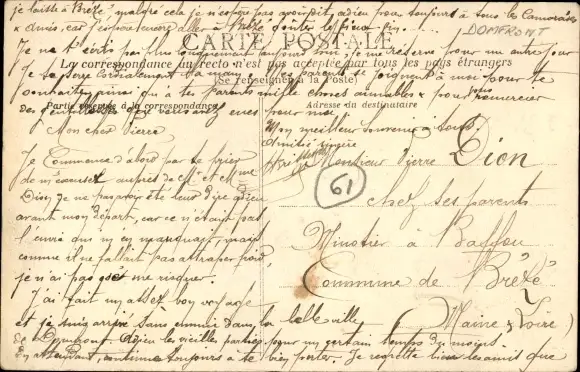 je laisse à Brézé malgré cela je n'espère pas
adieu pour toujours à tous les Camarades
& amis, car j'espère encore aller à Brézé
DOMFRONT
CARTE POSTALE
Je ne t'écris pas plus longuement aujourd'hui, je me réserve pour un autre jour
La correspondance au recto n'est pas acceptée par tous les pays étrangers
Je te serre cordialement la main
parents se joignent à moi pour te
(Se renseigner à la Poste)
souhaiter ainsi qu'à tes Parents mille choses aimables & pour remercier
Partie réservée à la correspondance
Adresse du destinataire
pour moi
Mon cher Pierre
Mon meilleur souvenir à tous.
Amitiés sincères
Je Commence d'abord par te prier
de m'excuser auprès de Mr et Mme
Dion, je ne pas avoir été leur dire adieu
avant mon départ, car ce n'étant pas
l'envie qui m'en manquait, mais
comme il ne fallait pas attraper froid
je n'ai pas osé me risquer.
J'ai fait un assez bon voyage
et je suis arrivé sans ennui dans la belle ville
de Domfront. Adieu les vieilles parties pour un certain temps du moins.
En attendant, continue toujours à te bien porter. Je regrette bien les amis que
Monsieur Pierre Dion
61
chez ses parents
Minotier à
Commune de Brézé
(Maine & Loire)